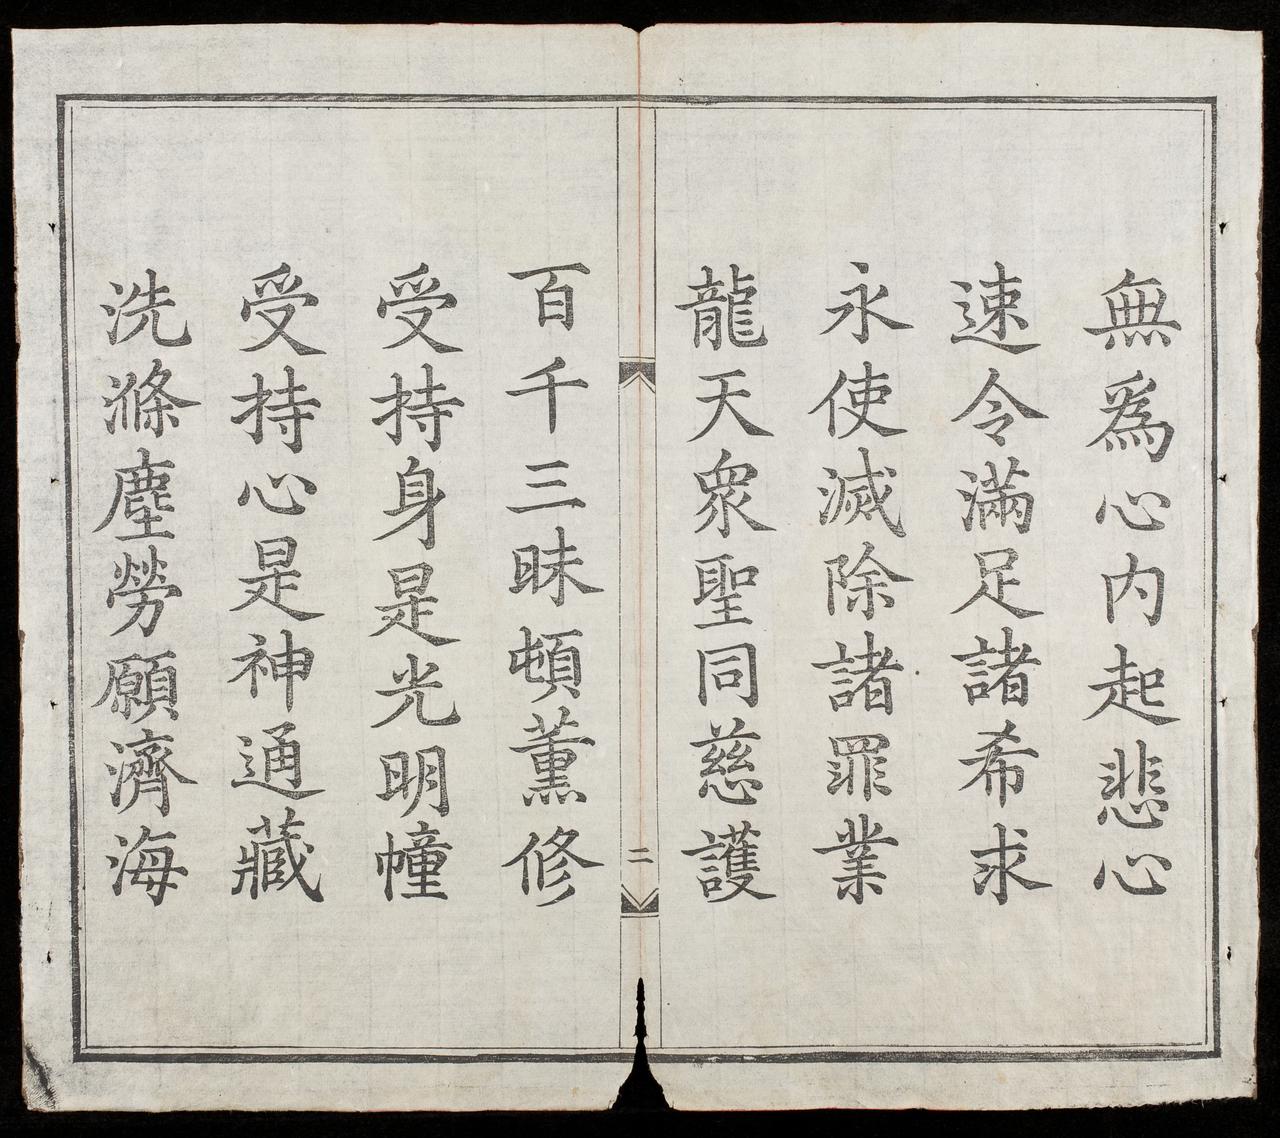 無爲心内起悲心
速令滿足諸希求
永使滅除諸罪業
龍天衆聖同慈護
二
百千三昧頓薰修
受持身是光明幢
受持心是神通藏
洗滌塵勞願濟海